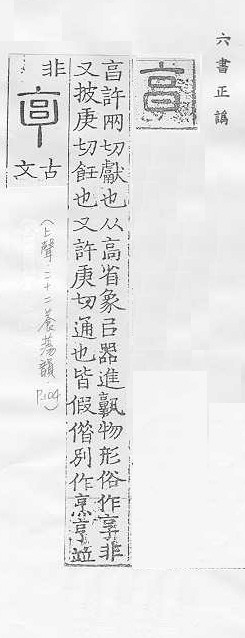 六書正譌
亯
亯許兩切獻也从高省象㠯器進孰物形俗作享非
又披庚切飪也又許庚切通也皆假偺別作烹亨並
非
古文
(上聲:二十二養蕩韻 P.104)